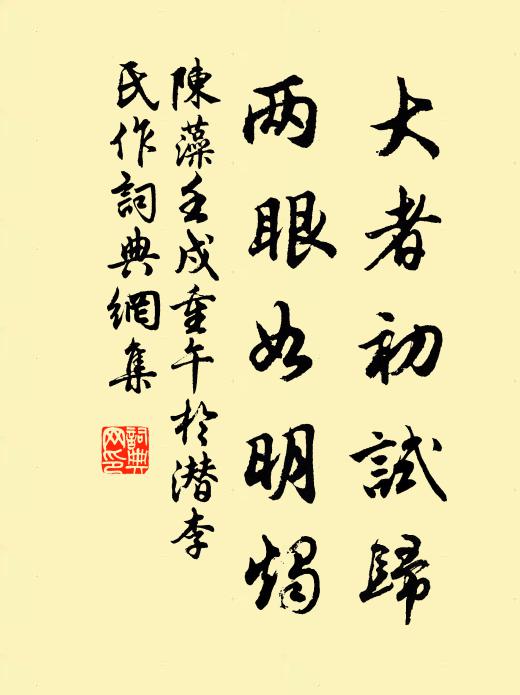 大者初試歸
两眼如明燭
陳藻壬戌重午於潛李
氏作詞典網集
詞典
网印